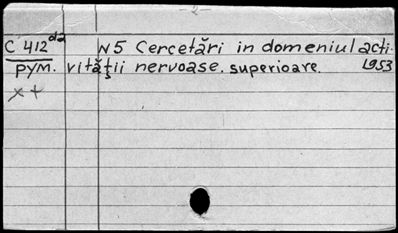 - 2 -
C 412 da N5 Cercetări in domeniul acti-
pym. vităţii nervoase superioare. 1953
x +